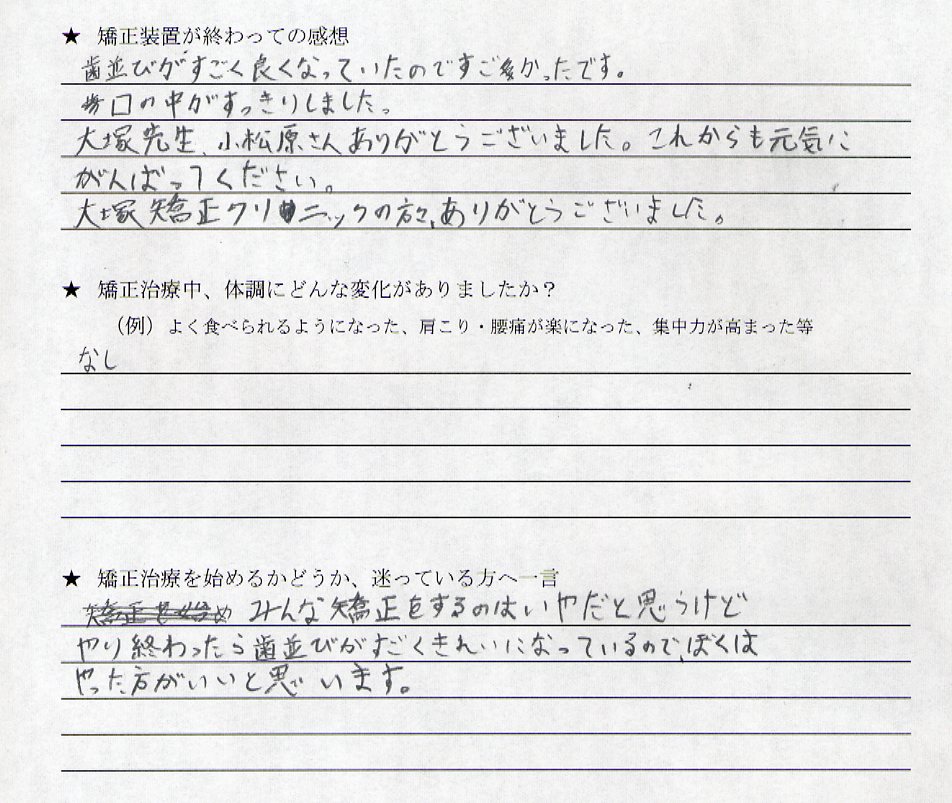 ★ 矯正装置が終わっての感想
歯並びがすごく良くなっていたのですごかったです。
口の中がすっきりしました。
大塚先生、小松原さんありがとうございました。これからも元気に
がんばってください。
大塚矯正クリニックの方々、ありがとうございました。
★ 矯正治療中、体調にどんな変化がありましたか？
（例）よく食べられるようになった、肩こり・腰痛が楽になった、集中力が高まった等
なし
★ 矯正治療を始めるかどうか、迷っている方へ一言
みんな矯正をするのはいやだと思うけど
やり終わったら歯並びがすごくきれいになっているので、ぼくは
やった方がいいと思います。